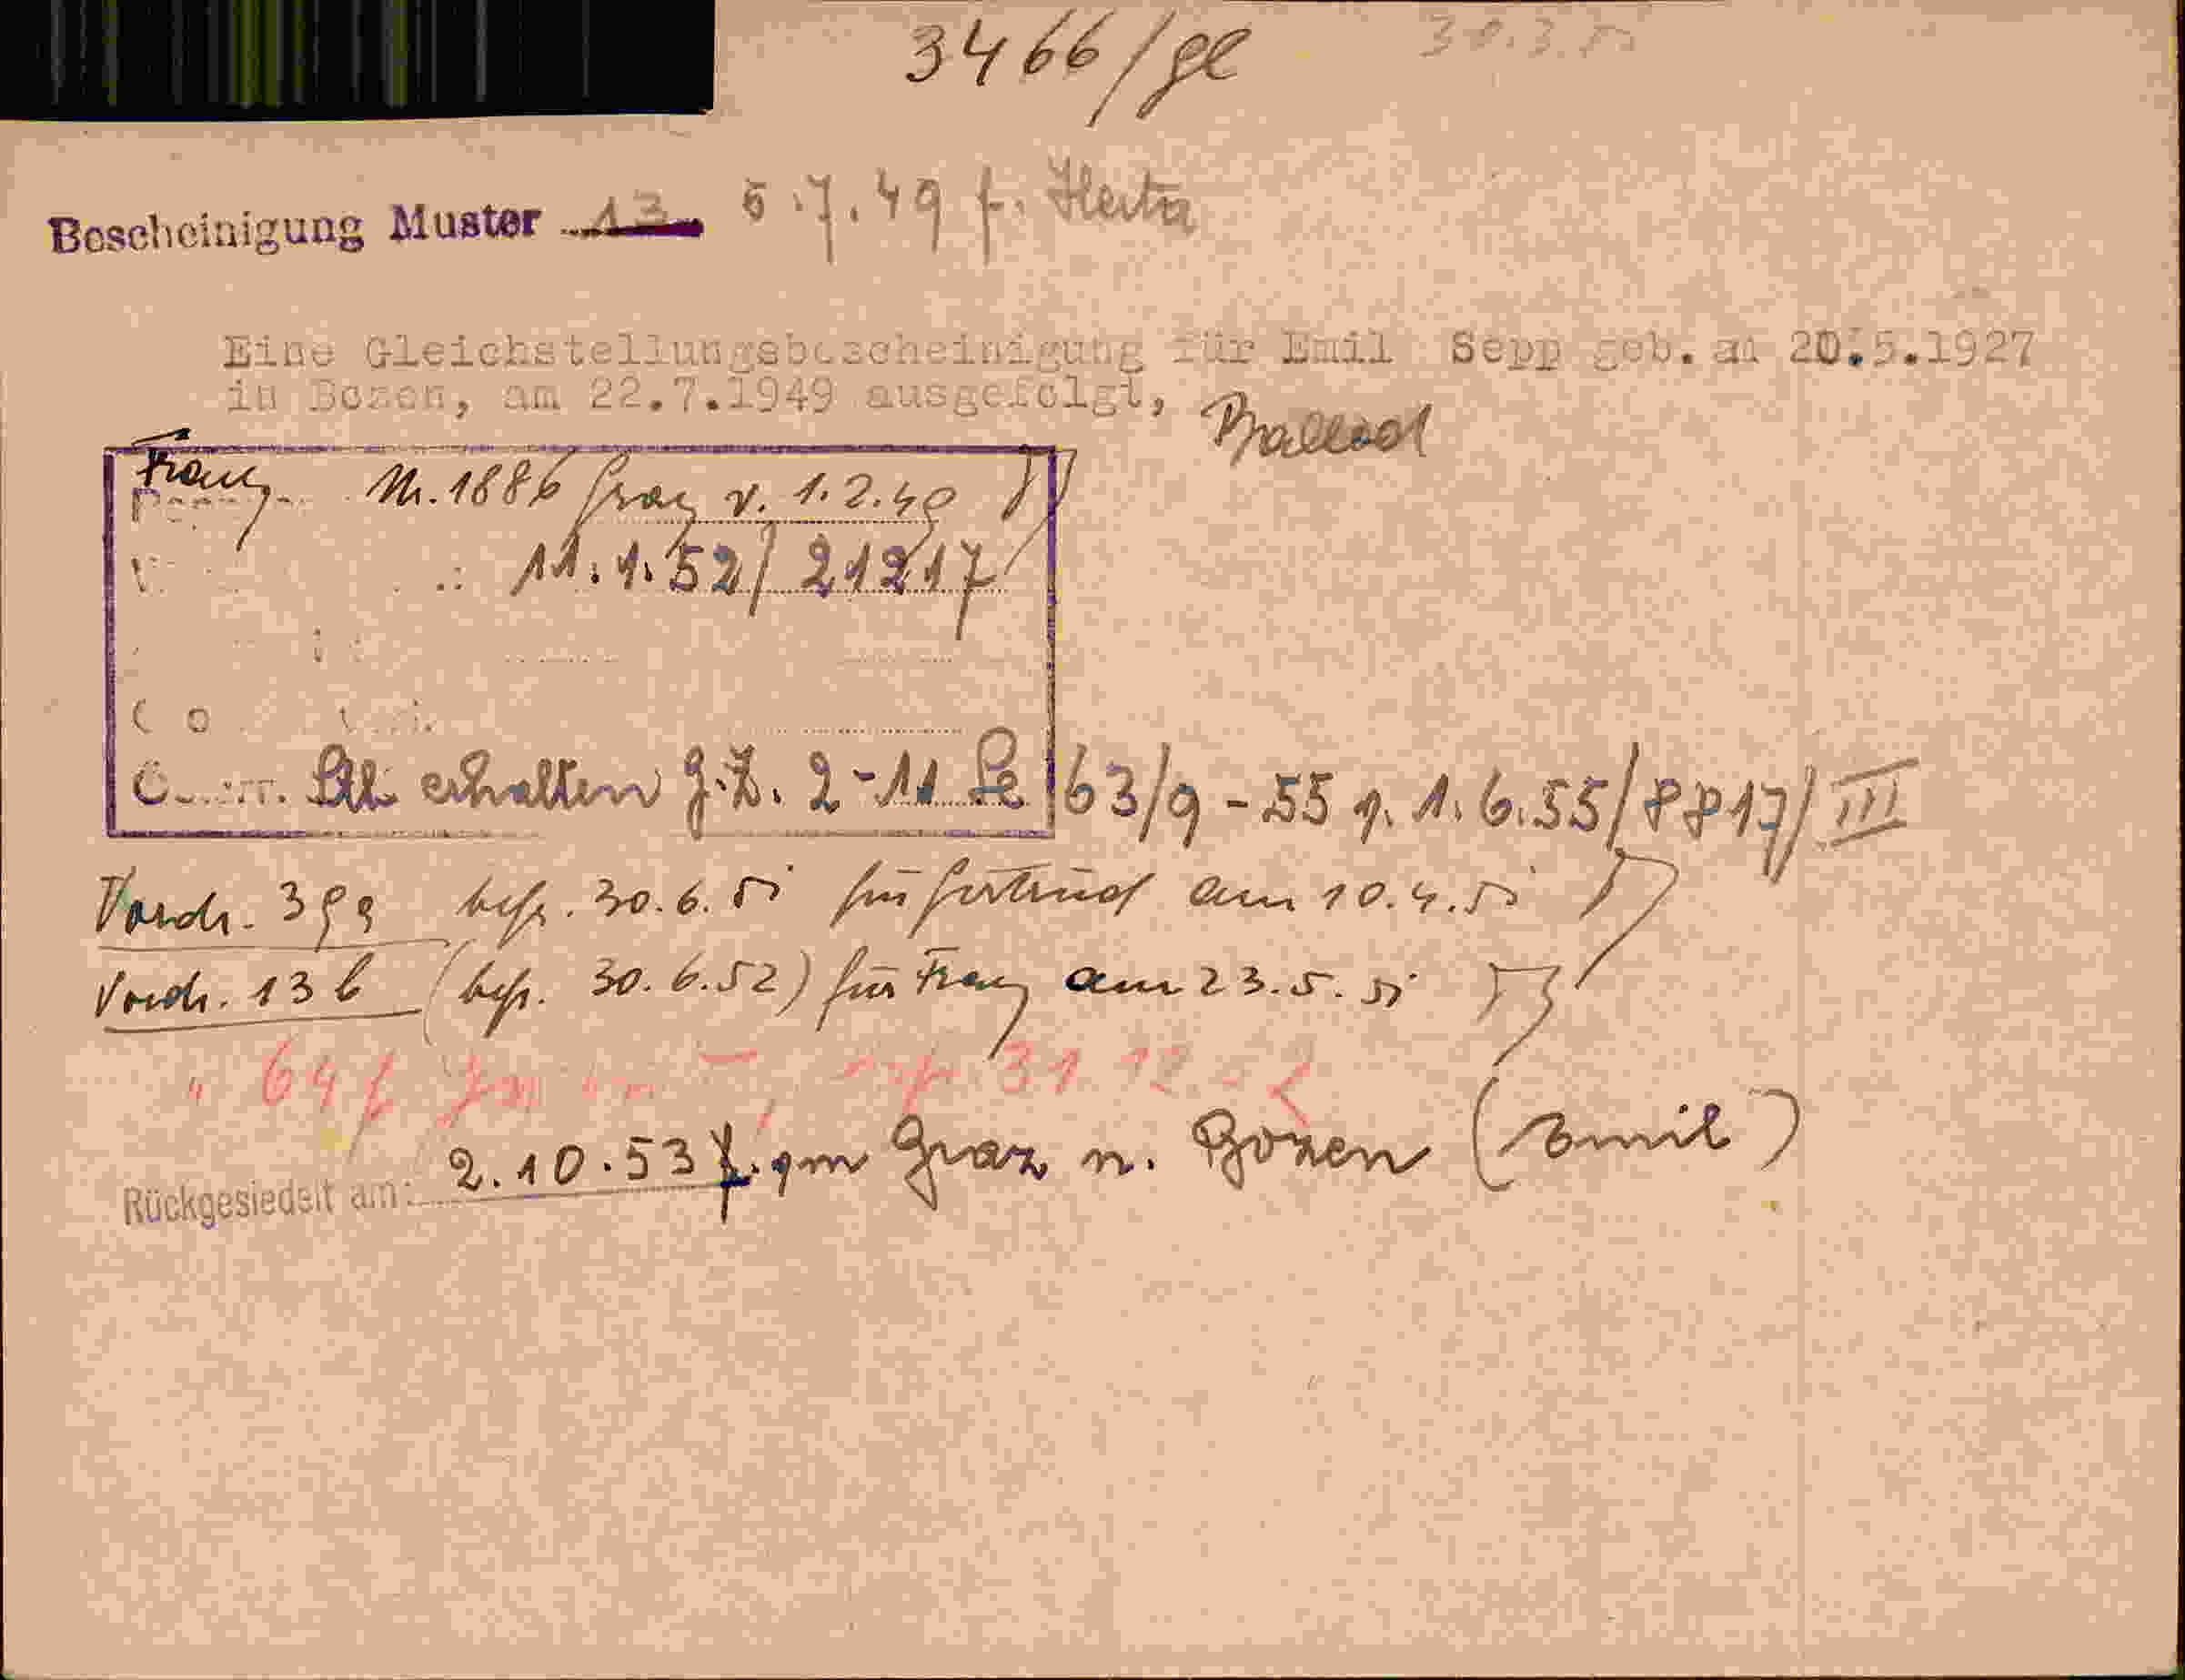 3466/gl 30.3.51
Bescheinigung Muster 13 5.7.49 f. Herta
Eine Gleichstellungsbescheinigung für Emil Sepp geb. am 20.5.1927
in Bozen, am 22.7.1949 ausgefolgt,
Franz Nr. 1886 Graz v. 1.2.40
11.1.52/21217
erhalten g.Z. 2-11 Se 63/9-55 v. 1.6.55/8817/III
Vordr. 39a befr. 30.6.51 für Gertrud am 10.4.51
Vordr. 13b (befr. 30.6.52) für Franz am 23.5.51
" 64f 31 12
Rückgesiedelt am: 2.10.53 Graz n. Bozen (Emil)